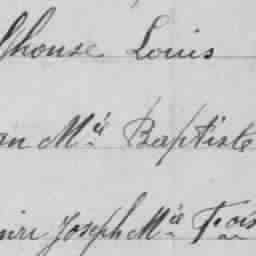 lphonse Louis
an Mie Baptiste
enri Joseph Mie Fois